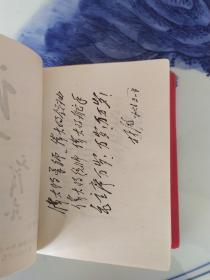 伟大的导师、伟大的领袖
伟大的统帅、伟大的舵手
毛主席万岁!万岁!万万岁!
林彪